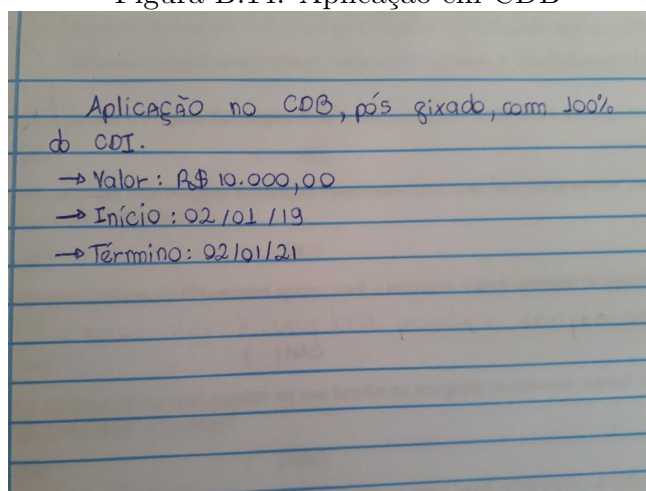 Figura B.14: Aplicação em CDB
Aplicação no CDB, pós fixado, com 100%
do CDI.
→ Valor: R$ 10.000,00
→ Início: 02/01/19
→ Término: 02/01/21